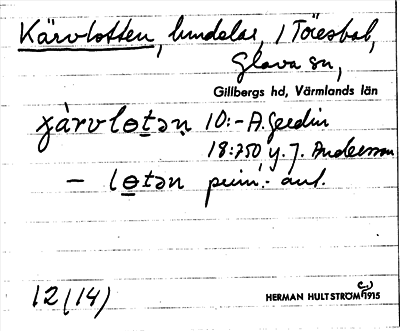 Kärvlotten, lindelar, i Töresbol,
Glava sn,
Gillbergs hd, Värmlands län
10:- A. Geedin
18:750 y. J. Andersson
prim. ant.
12 (14)
HERMAN HULTSTRÖM 1915